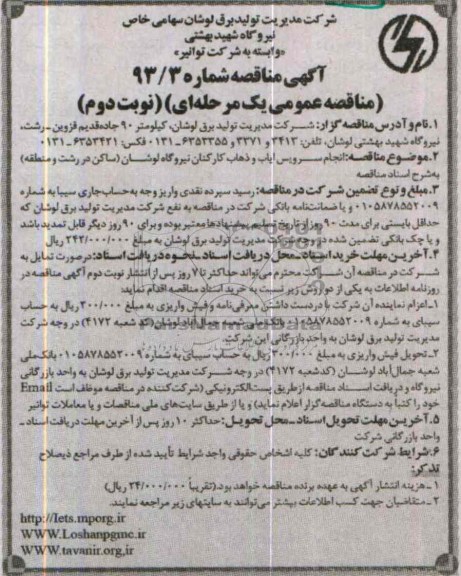 شرکت مدیریت تولیدبرق لوشان سهامی خاص
نیروگاه شهید بهشتی
«وابسته به شرکت توانیر»
آگهی مناقصه شماره ۹۳/۳
(مناقصه عمومی یک مرحله‌ای) (نوبت دوم)
۱ـ نام و آدرس مناقصه گزار: شرکت مدیریت تولید برق لوشان، کیلومتر ۹۰ جاده قدیم قزوین ـ رشت،
نیروگاه شهید بهشتی لوشان، تلفن: ۳۴۱۳ و ۳۳۷۱ و ۶۳۵۳۳۵۵ ـ ۰۱۳۱ فکس: ۶۳۵۳۴۲۱ ـ ۰۱۳۱
۲ـ موضوع مناقصه: انجام سرویس ایاب و ذهاب کارکنان نیروگاه لوشان (ساکن در رشت و منطقه)
به شرح اسناد مناقصه
۳ـ مبلغ و نوع تضمین شرکت در مناقصه: رسید سپرده نقدی واریز وجه به حساب جاری سیبا به شماره
۰۱۰۵۸۷۸۵۵۲۰۰۹ و یا ضمانتنامه بانکی شرکت در مناقصه به نفع شرکت مدیریت تولید برق لوشان که
حداقل بایستی برای مدت ۹۰ روز از تاریخ تسلیم پیشنهادها معتبر بوده و برای ۹۰ روز دیگر قابل تمدید باشد
و یا چک بانکی تضمین شده در وجه شرکت مدیریت تولید برق لوشان به مبلغ ۲۴۲/۰۰۰/۰۰۰ ریال
۴ـ آخرین مهلت خرید اسناد ـ محل دریافت اسناد ـ نحوه دریافت اسناد: درصورت تمایل به
شرکت در مناقصه آن شرکت محترم می‌تواند حداکثر تا ۷ روز پس از انتشار نوبت دوم آگهی مناقصه در
روزنامه اطلاعات به یکی از دو روش زیر نسبت به خرید اسناد مناقصه اقدام نماید:
۱ـ اعزام نماینده آن شرکت با در دست داشتن معرفی نامه و فیش واریزی به مبلغ ۳۰۰/۰۰۰ ریال به حساب
سیبای به شماره ۰۱۰۵۸۷۸۵۵۲۰۰۹ بانک ملی شعبه جمال آباد لوشان (کد شعبه ۴۱۷۲) در وجه شرکت
مدیریت تولید برق لوشان به واحد بازرگانی این شرکت.
۲ـ تحویل فیش واریزی به مبلغ ۳۰۰/۰۰۰ ریال به حساب سیبای به شماره ۰۱۰۵۸۷۸۵۵۲۰۰۹ بانک ملی
شعبه جمال آباد لوشان (کد شعبه ۴۱۷۲) در وجه شرکت مدیریت تولید برق لوشان به واحد بازرگانی
نیروگاه و دریافت اسناد مناقصه از طریق پست الکترونیکی (شرکت کننده در مناقصه موظف است Email
خود را کتباً به دستگاه مناقصه گزار اعلام نماید) و یا از طریق سایت‌های ملی مناقصات و یا معاملات توانیر
۵ـ آخرین مهلت تحویل اسناد ـ محل تحویل: حداکثر ۱۰ روز پس از آخرین مهلت دریافت اسناد ـ
واحد بازرگانی شرکت
۶ـ شرایط شرکت کنندگان: کلیه اشخاص حقوقی واجد شرایط تأیید شده از طرف مراجع ذیصلاح
تذکر:
۱ـ هزینه انتشار آگهی به عهده برنده مناقصه خواهد بود. (تقریباً ۲۴/۰۰۰/۰۰۰ ریال)
۲ـ متقاضیان جهت کسب اطلاعات بیشتر می‌توانند به سایتهای زیر مراجعه نمایند.
http://Iets.mporg.ir
WWW.Loshanpgmc.ir
WWW.tavanir.org.ir